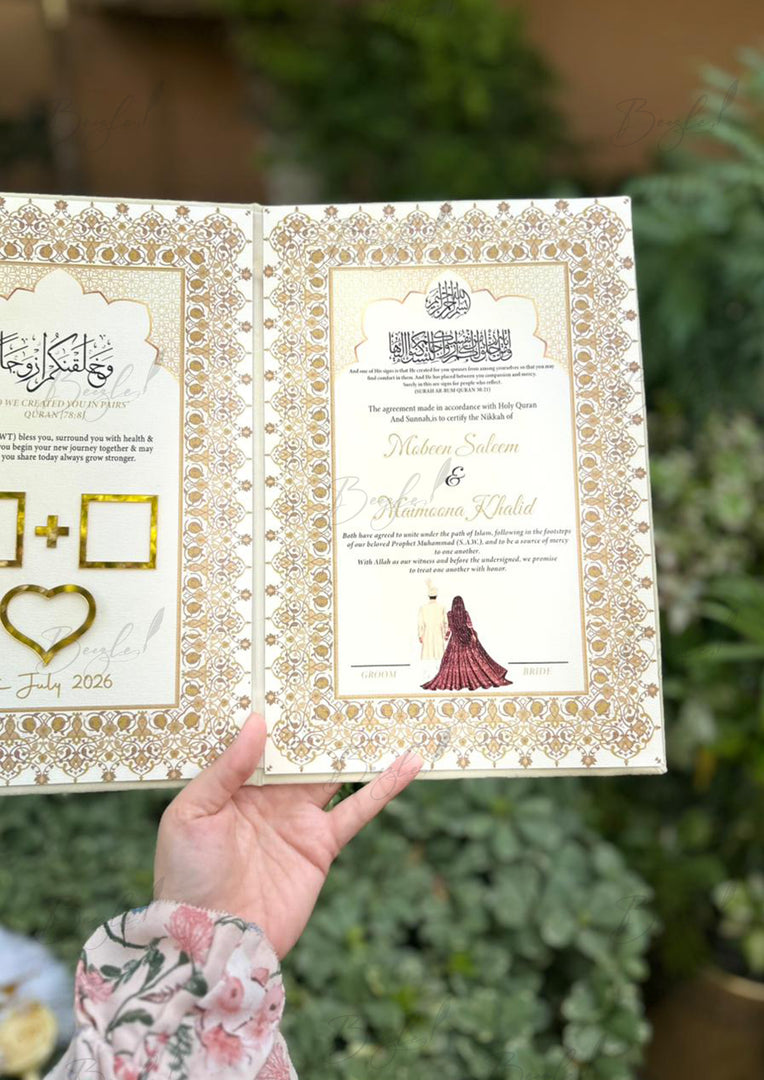 وخلقنكم أزوجا
WE CREATED YOU IN PAIRS"
QURAN [78:8]
WT) bless you, surround you with health &
you begin your new journey together & may
you share today always grow stronger.
+
July 2026
بسم الله الرحمن الرحيم
And one of His signs is that He created for you spouses from among yourselves so that you may
find comfort in them. And He has placed between you compassion and mercy.
Surely in this are signs for people who reflect.
(SURAH AR-RUM QURAN 30:21)
The agreement made in accordance with Holy Quran
And Sunnah,is to certify the Nikkah of
Mobeen Saleem
&
Maimoona Khalid
Both have agreed to unite under the path of Islam, following in the footsteps
of our beloved Prophet Muhammad (S.A.W), and to be a source of mercy
to one another.
With Allah as our witness and before the undersigned, we promise
to treat one another with honor.
GROOM
BRIDE